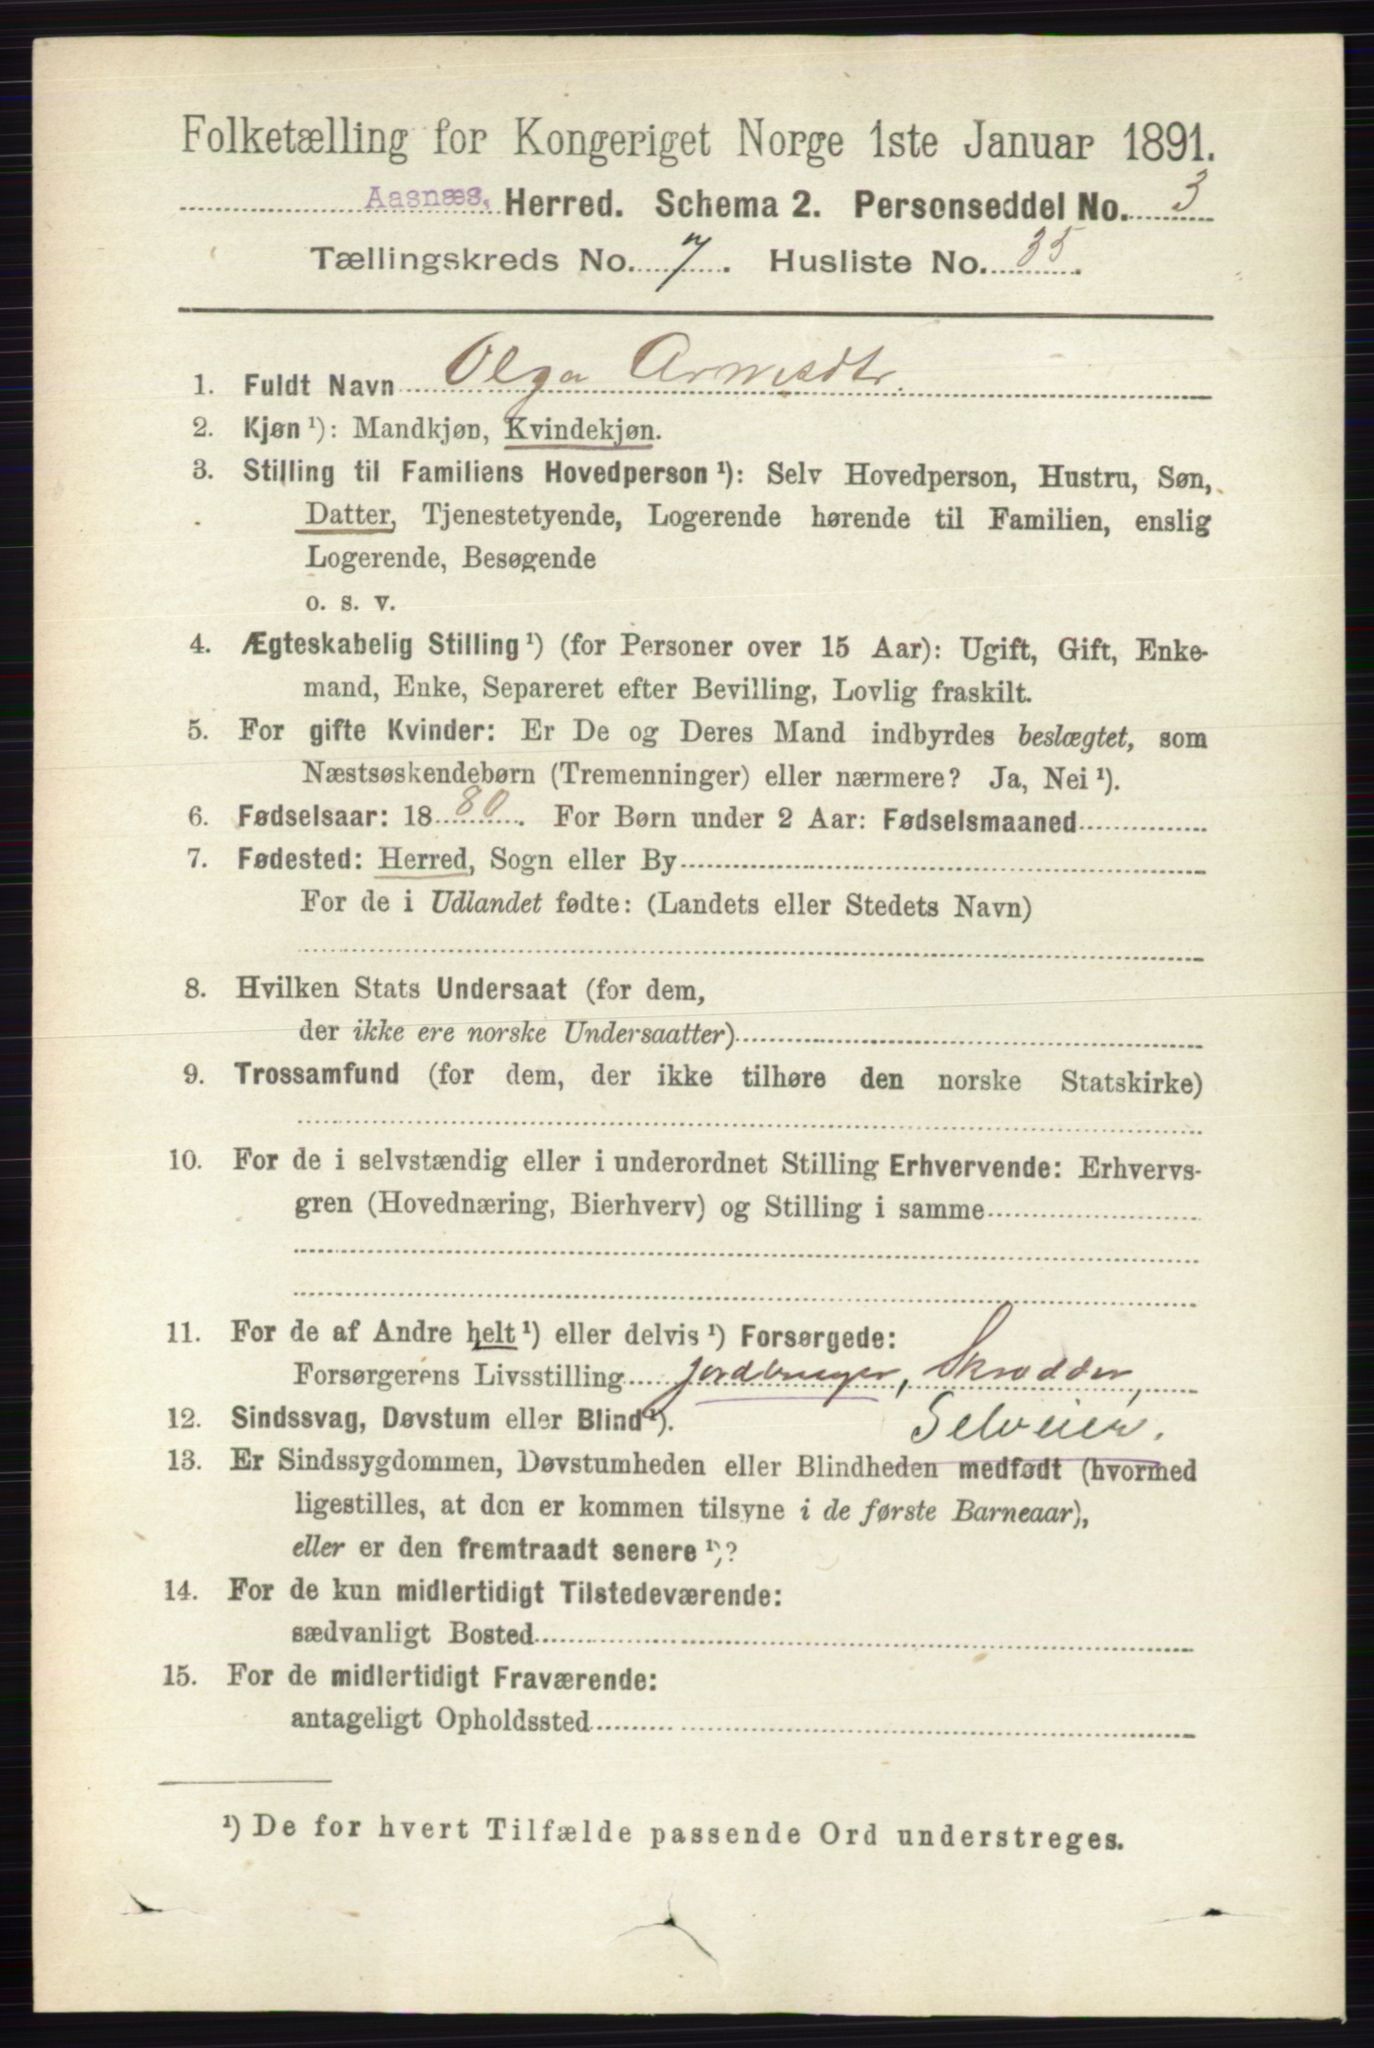 Folketælling for Kongeriget Norge 1ste Januar 1891.
Aasnæs, Herred. Schema 2. Personseddel No. 3
Tællingskreds No. 7. Husliste No. 35.
1. Fuldt Navn Olga Arnesdtr.
2. Kjøn ¹): Mandkjøn, Kvindekjøn.
3. Stilling til Familiens Hovedperson ¹): Selv Hovedperson, Hustru, Søn,
Datter, Tjenestetyende, Logerende hørende til Familien, enslig
Logerende, Besøgende
o. s. v.
4. Ægteskabelig Stilling ¹) (for Personer over 15 Aar): Ugift, Gift, Enke-
mand, Enke, Separeret efter Bevilling, Lovlig fraskilt.
5. For gifte Kvinder: Er De og Deres Mand indbyrdes beslægtet, som
Næstsøskendebørn (Tremenninger) eller nærmere? Ja, Nei ¹).
6. Fødselsaar: 1880. For Børn under 2 Aar: Fødselsmaaned
7. Fødested: Herred, Sogn eller By
For de i Udlandet fødte: (Landets eller Stedets Navn)
8. Hvilken Stats Undersaat (for dem,
der ikke ere norske Undersaatter)
9. Trossamfund (for dem, der ikke tilhøre den norske Statskirke)
10. For de i selvstændig eller i underordnet Stilling Erhvervende: Erhvervs-
gren (Hovednæring, Bierhverv) og Stilling i samme
11. For de af Andre helt ¹) eller delvis ¹) Forsørgede:
Forsørgerens Livsstilling Jordbruger, Skrædder,
12. Sindssvag, Døvstum eller Blind ¹). Selveier.
13. Er Sindssygdommen, Døvstumheden eller Blindheden medfødt (hvormed
ligestilles, at den er kommen tilsyne i de første Barneaar),
eller er den fremtraadt senere ¹)?
14. For de kun midlertidigt Tilstedeværende:
sædvanligt Bosted
15. For de midlertidigt Fraværende:
antageligt Opholdssted
¹) De for hvert Tilfælde passende Ord understreges.